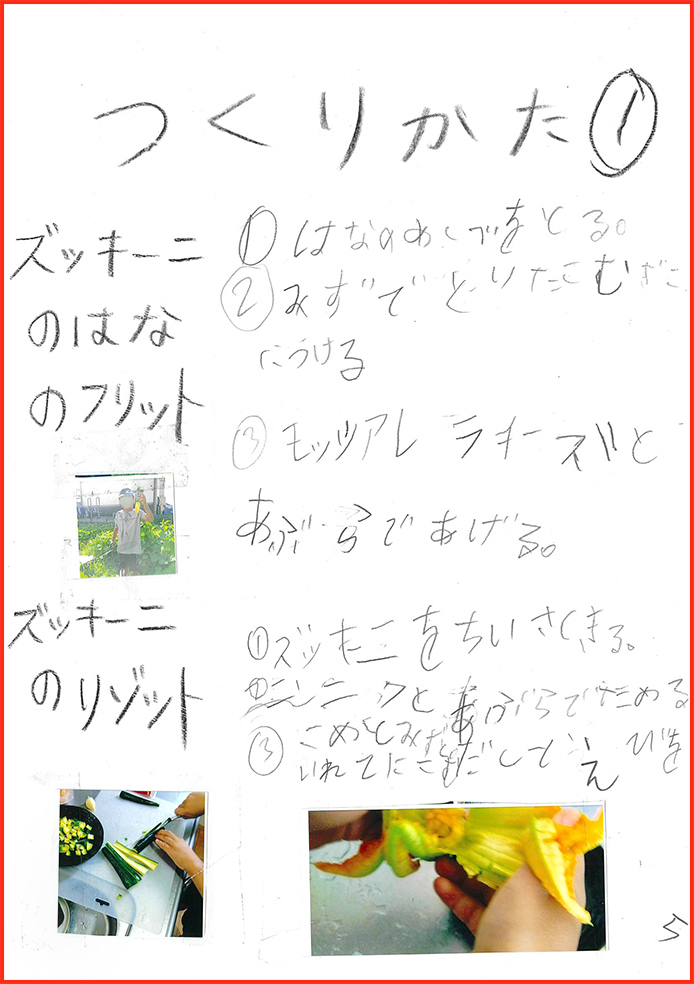 つくりかた①
ズッキーニ
のはな
のフリット
①はなのめしべをとる。
②みずでといたこむぎこ
につける
③モッツアレラチーズと
あぶらであげる。
ズッキーニ
のリゾット
①ズッキーニをちいさくきる。
②ニンニクとあぶらでいためる
③こめとみずを
いれてにこむだしとえびを
5